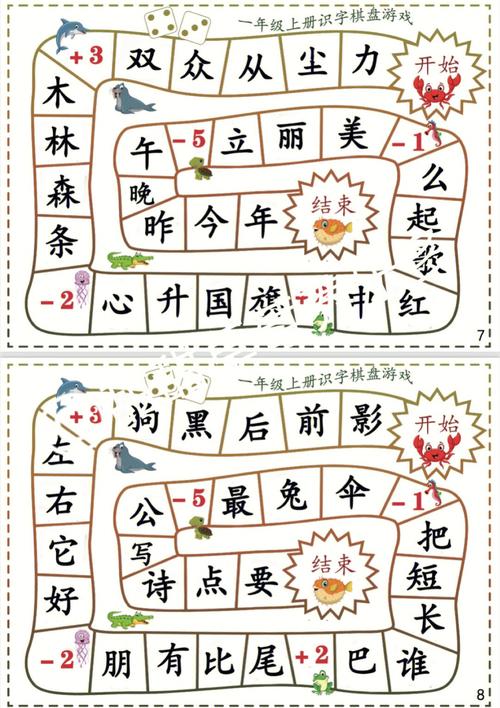 一年级上册识字棋盘游戏
开始
力
尘
从
众
双
+3
木
林
森
条
-2
心
升
国
旗
中
红
歌
起
么
-1
美
丽
立
-5
午
晚
昨
今
年
结束
7
一年级上册识字棋盘游戏
开始
影
前
后
黑
狗
+3
左
右
它
好
-2
朋
有
比
尾
+2
巴
谁
长
短
把
-1
伞
兔
最
-5
公
写
诗
点
要
结束
8